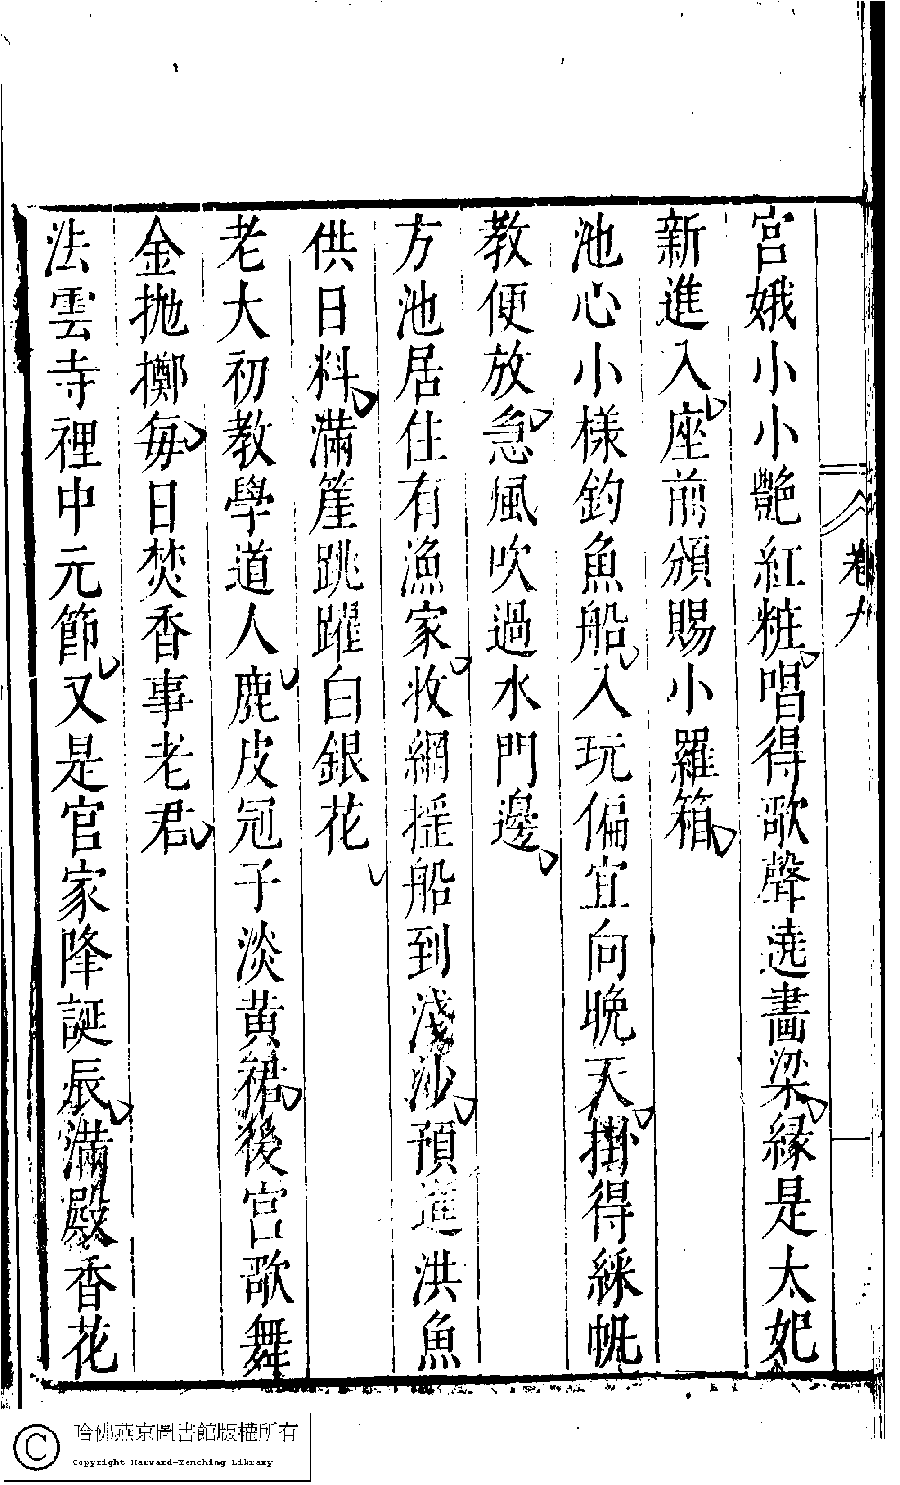 宮娥小小艶紅粧唱得歌聲遶畫梁縁是太妃
新進入座前頒賜小羅箱
池心小様釣魚船入玩偏宜向晚天掛得綵帆
教便放急風吹過水門邊
方池居住有漁家收網揺船到淺沙預進洪魚
供日料滿筐跳躍白銀花
老大初教學道人鹿皮冠子淡黄裙後宮歌舞
金抛擲每日焚香事老君
法雲寺裡中元節又是官家降誕辰滿殿香花
卷九
哈佛燕京圖書館版權所有
Copyright Harvard-Yenching Library